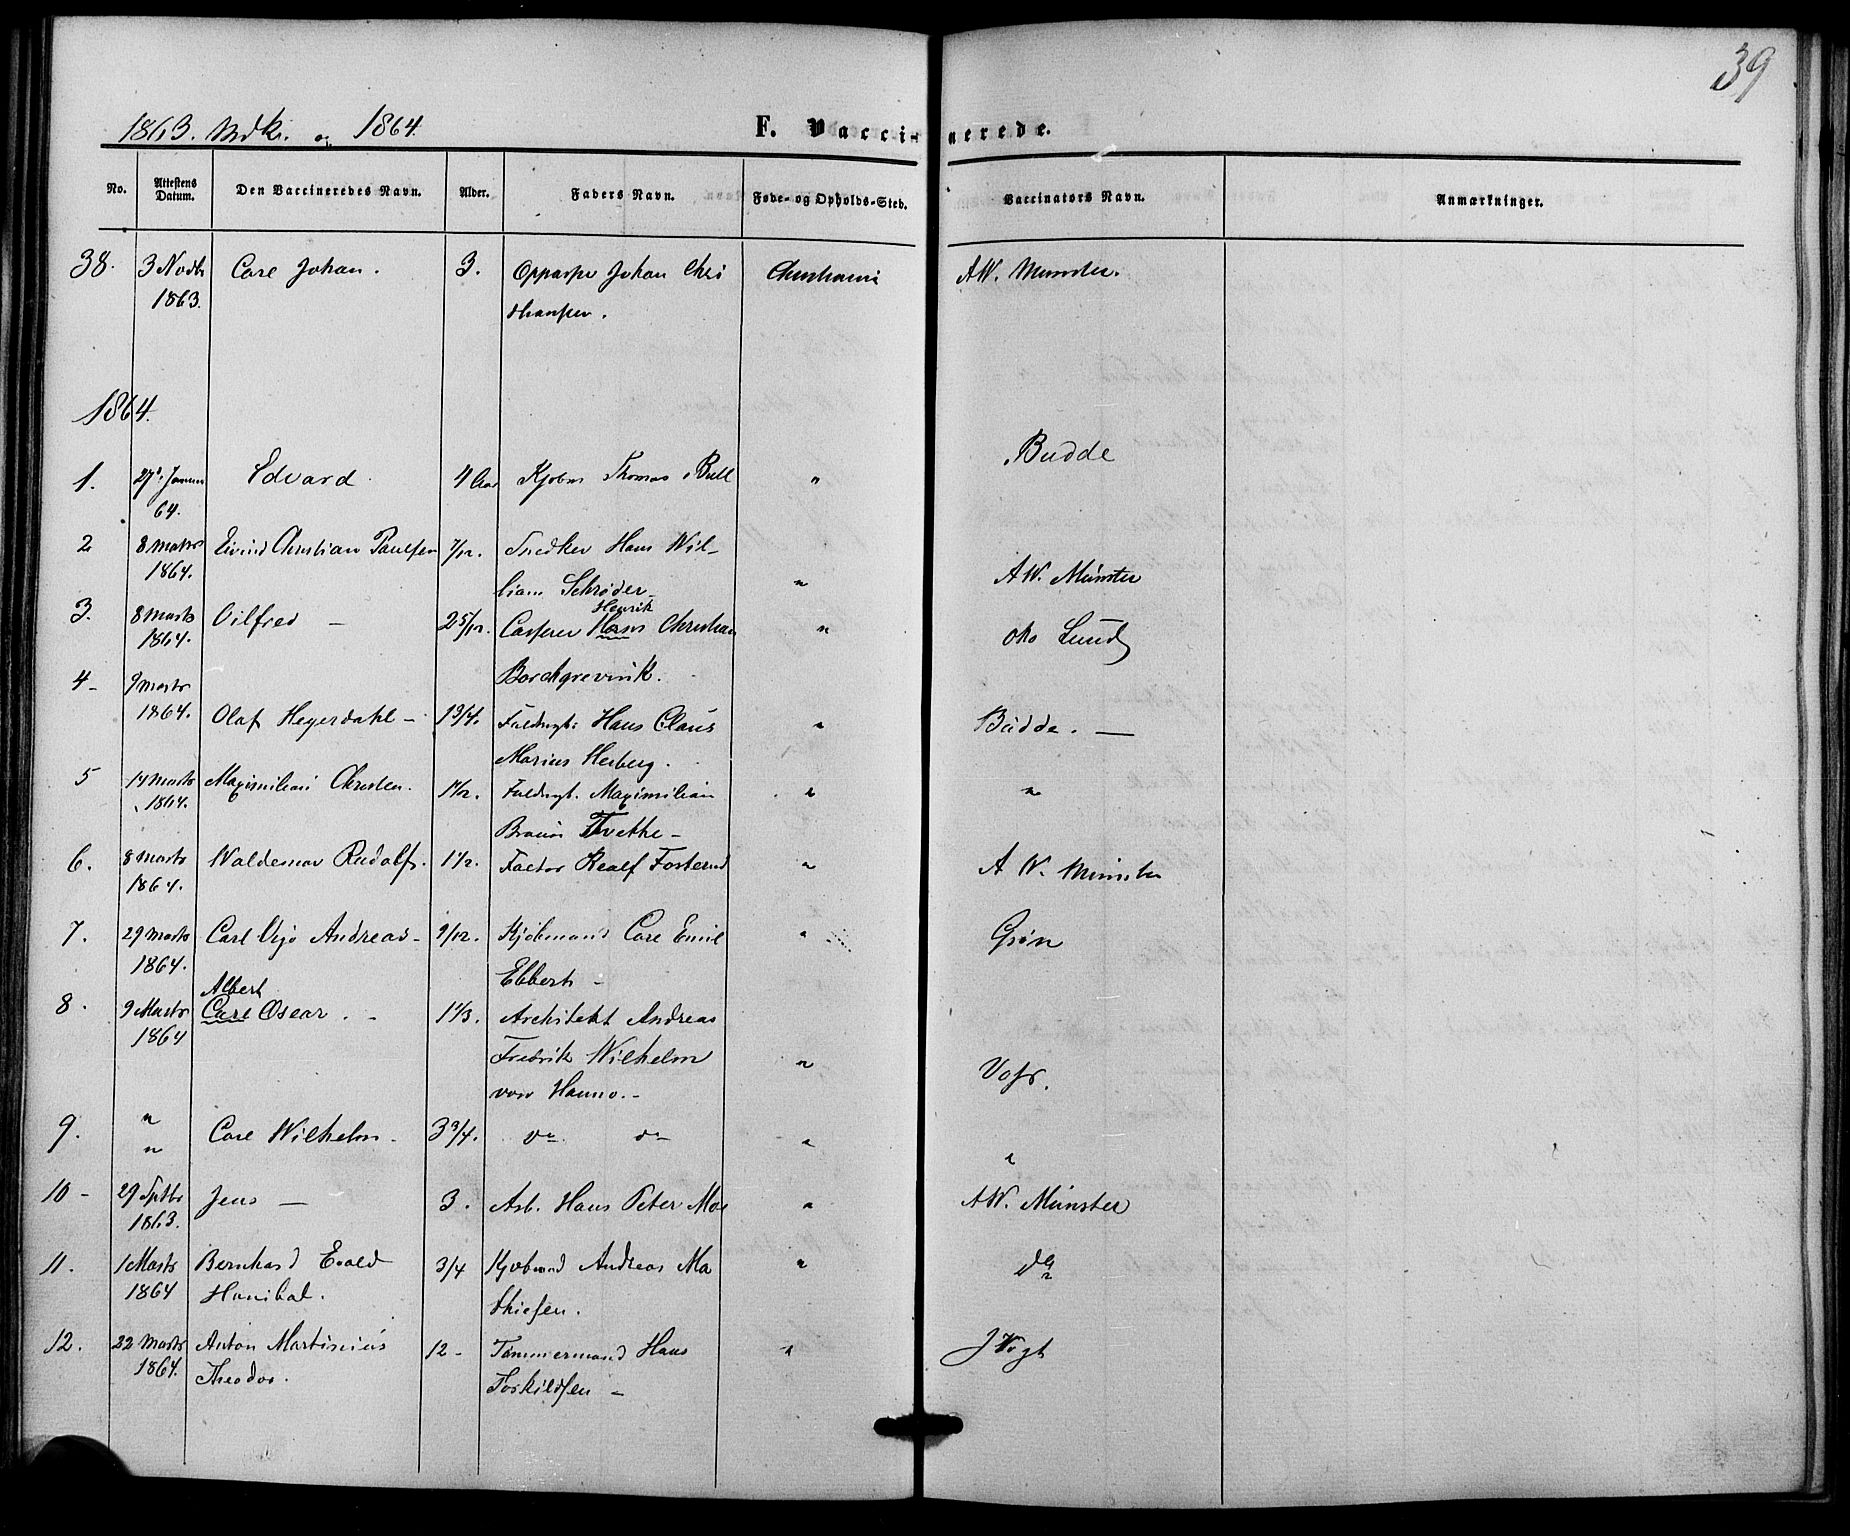 39
1863. Mdk. og 1864.
F. Vaccinerede.
No. Attestens Datum. Den Vaccineredes Navn. Alder. Faders Navn. Føde- og Opholds-Sted. Vaccinators Navn. Anmærkninger.
38. 3 Novbr Carl Johan. 3. Oppasser Johan Chri Christiania AW. Münster.
1863. sthansen.
1864.
1. 27' Januar Edvard. 4 Aar Kjøbm Thomas Bull " Budde
64.
2 8 Marts Eivind Christian Paulsen 7/12. Snedker Hans Wil-
1864. liam Schrøder- " AW. Münster
Henrik
3. 8 Marts Vilfred - 2 5/12. Casserer Hans Christian " Lund
1864.
Borchgrevink.
4- 9 Marts
1864. Olaf Heyerdahl - 1 3/4. Fuldmgt: Hans Claus " Budde. -
Marius Herberg.
5 14 Marts Maximilian Christen. Fuldmgt. Maximilian " "
1864. Braun Tvethe-
6. 8 Marts Waldemar Rudolf. 1 1/2. Factor Realf Fosterud " A W. Münster
1864.
7. 29 Marts Carl Andreas- 9/12. Kjøbmand Carl Emil " Grøn
1864. Ebbert -
Albert
8. 9 Marts Carl Oscar. - 1 1/3. Architekt Andreas
1864 Fredrik Wilhelm " Voss.
von Hanno.-
9. " Carl Wilhelm - 3 3/4. do do " "
"
10- 29 Sptbr Jens - 3. Arb. Hans Peter Moe " AW. Münster
1863.
11. 1 Marts Bernhard Evald 3/4 Kjøbmd Andreas Ma " do
1864 Hanibal. thiesen.
12. 22 Marts Anton Martinius 12- Tømmermand Hans " J Vogt
1864. Theodor. Torkildsen -